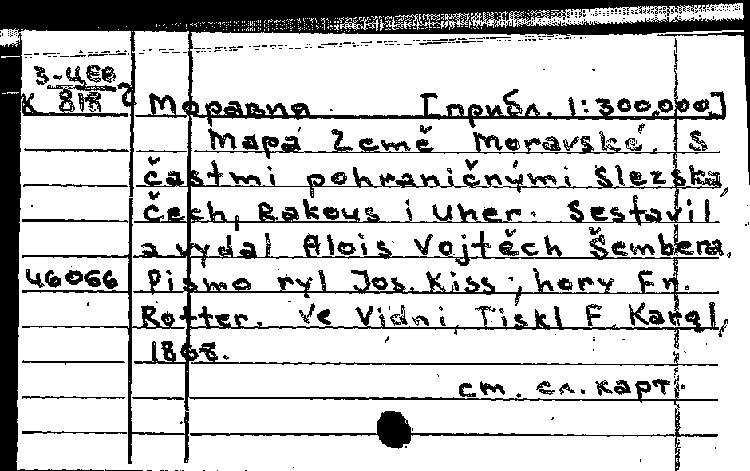 З-ЦЕВ
К 818
Моравия. [прибл. 1:300,000.]
Mapa Země Moravské. S
částmi pohraničnými Slezska,
Čech, Rakous i Uher. Sestavil
a vydal Alois Vojtěch Šembera.
46066 Pismo ryl Jos. Kiss; hory Fr.
Rotter. Ve Vidni, Tiskl F. Kargl,
1868.
см. сл. карт.